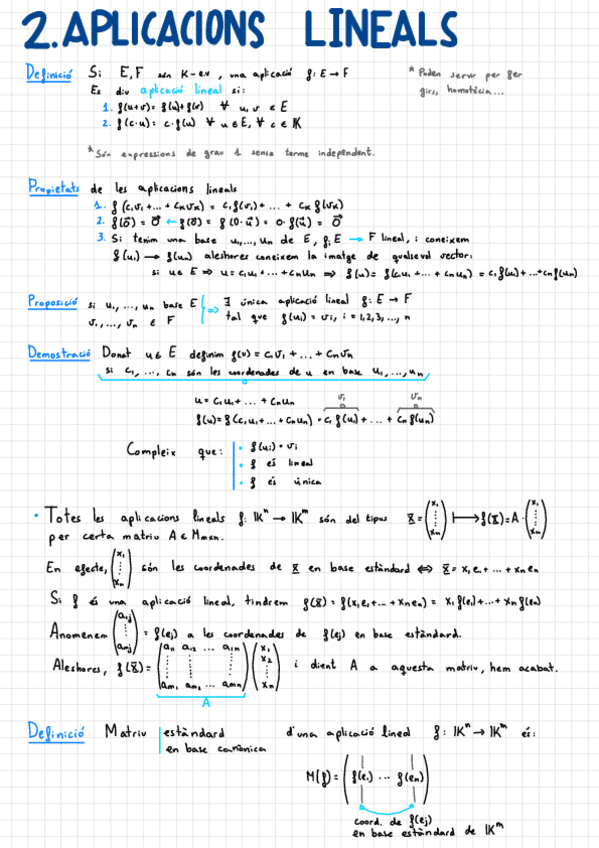 2. APLICACIONS LINEALS
Definició Si E, F són K-e.v, una aplicació f: E → F
* Poden servir per fer
girs, homotècia...
Es diu aplicació lineal si:
1. f(u+v) = f(u)+f(v) ∀ u,v ∈ E
2. f(c·u) = c·f(u) ∀ u ∈ E, ∀ c ∈ K
* Són expressions de grau 1 sense terme independent.
Propietats de les aplicacions lineals
1. f(c₁v₁+...+cₖvₖ) = c₁f(v₁)+...+ cₖ f(vₖ)
2. f(0⃗) = 0⃗ ← f(0⃗) = f(0·u⃗) = 0·f(u⃗) = 0⃗
3. Si tenim una base u₁,...,uₙ de E, f: E → F lineal, i coneixem
f(u₁) → f(uₙ) aleshores coneixem la imatge de qualsevol vector:
si u ∈ E ⇒ u = c₁u₁+...+cₙuₙ ⇒ f(u) = f(c₁u₁+...+cₙuₙ) = c₁f(u₁)+...+cₙf(uₙ)
Proposició si u₁,...,uₙ base E
v₁,...,vₙ ∈ F
⇒ ∃ única aplicació lineal f: E → F
tal que f(uᵢ) = vᵢ, i = 1,2,3,..., n
Demostració Donat u ∈ E definim f(u) = c₁v₁+...+cₙvₙ
si c₁,...,cₙ són les coordenades de u en base u₁,...,uₙ
u = c₁u₁+...+cₙuₙ v₁ vₙ
f(u) = f(c₁u₁+...+cₙuₙ) = c₁f(u₁)+...+cₙf(uₙ)
Compleix que:
· f(uᵢ) = vᵢ
· f és lineal
· f és única
· Totes les aplicacions lineals f: Kⁿ → Kᵐ són del tipus x = (x₁ ⋮ xₙ) ↦ f(x) = A·(x₁ ⋮ xₙ)
per certa matriu A ∈ Mₘₓₙ.
En efecte, (x₁ ⋮ xₙ) són les coordenades de x en base estàndard ⇔ x = x₁e₁+...+xₙeₙ
Si f és una aplicació lineal, tindrem f(x) = f(x₁e₁+...+xₙeₙ) = x₁f(e₁)+...+xₙf(eₙ)
Anomenem (a₁ⱼ ⋮ aₙⱼ) = f(eⱼ) a les coordenades de f(eⱼ) en base estàndard.
Aleshores, f(x) = (a₁₁ a₁₂ ... a₁ₙ ⋮ ⋮ ⋮ aₘ₁ aₘ₂ ... aₘₙ)(x₁ x₂ ⋮ xₙ) i dient A a aquesta matriu, hem acabat.
A
Definició Matriu estàndard
en base canònica
d'una aplicació lineal f: Kⁿ → Kᵐ és:
M(f) = (f(e₁) ... f(eₙ))
coord. de f(eⱼ)
en base estàndard de Kᵐ